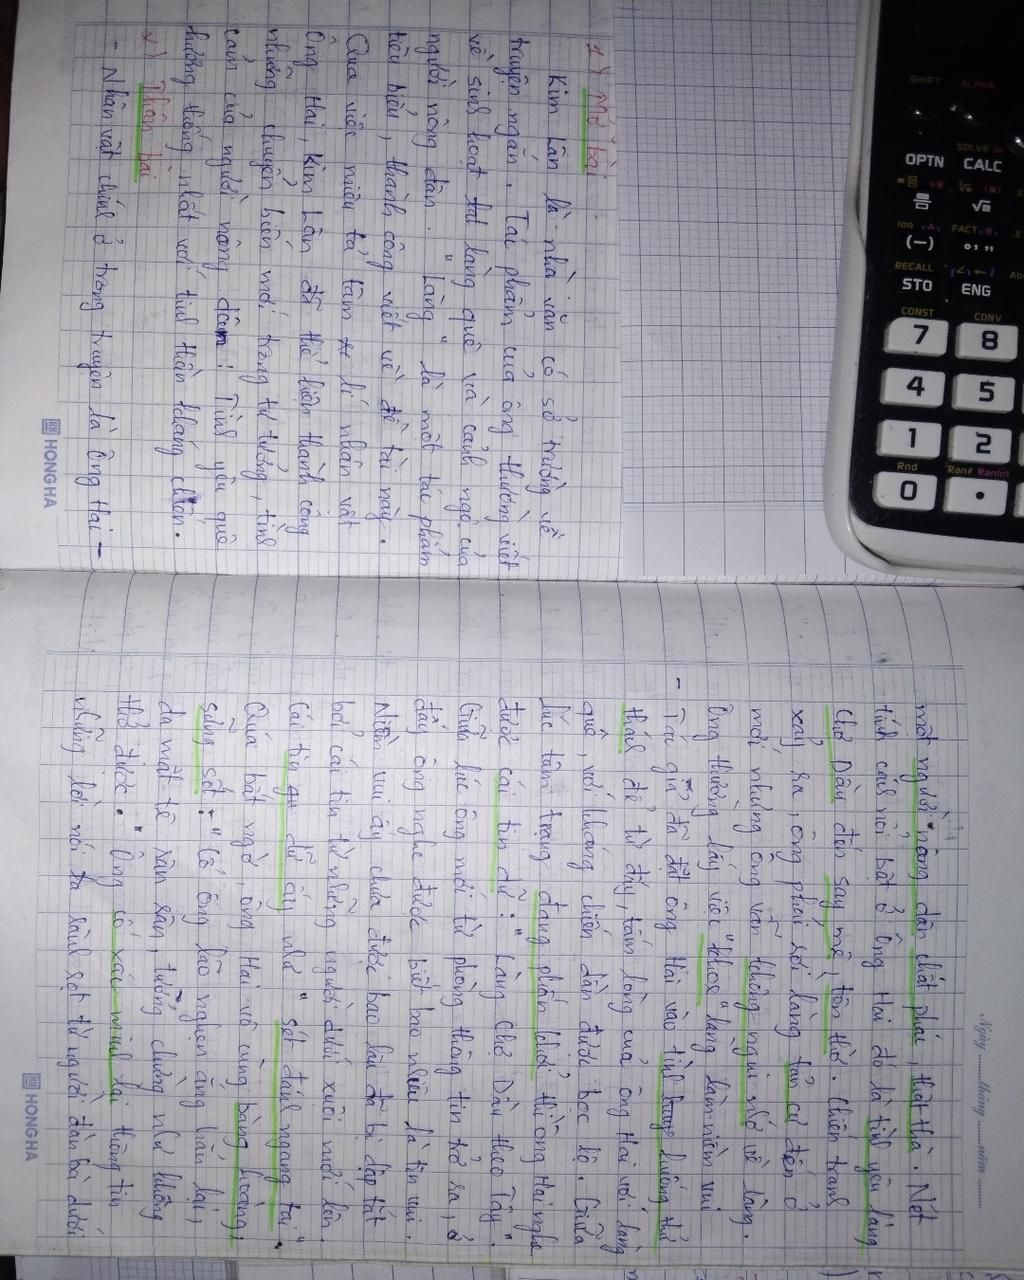 1) Mở bài
Kim Lân là nhà văn có sở trường về
truyện ngắn. Tác phẩm của ông thường viết
về sinh hoạt làng quê và cảnh ngộ của
người nông dân. "Làng" là một tác phẩm
tiêu biểu, thành công viết về đề tài này.
Qua việc miêu tả tâm lí nhân vật
Ông Hai, Kim Lân đã thể hiện thành công
những chuyển biến mới trong tư tưởng, tình
cảm của người nông dân: Tình yêu quê
hương thống nhất với tinh thần kháng chiến.
2) Thân bài
- Nhân vật chính ở trong truyện là Ông Hai -
một người nông dân chất phác, thật thà. Nét
tính cách nổi bật ở ông Hai đó là tình yêu làng
Chợ Dầu đến say mê, tôn thờ. Chiến tranh
xảy ra, ông phải rời làng tản cư đến ở
mới nhưng ông vẫn không nguôi nhớ về làng.
Ông thường lấy việc "khoe" làng làm niềm vui
- Tác giả đã đặt ông Hai vào tình huống thử
thách để từ đấy, tấm lòng của ông Hai với làng
quê, với kháng chiến dần được bộc lộ. Giữa
lúc tâm trạng đang phấn chởi thì ông Hai nghe
được cái tin dữ: "Làng Chợ Dầu theo Tây".
Giữa lúc ông mới từ phòng thông tin trở ra, ở
đấy ông nghe được biết bao nhiêu là tin vui.
Niềm vui ấy chưa được bao lâu đã bị dập tắt
bởi cái tin từ những người dưới xuôi mới lên.
Cái tin dữ ấy như "sét đánh ngang tai".
Quá bất ngờ, ông Hai vô cùng bàng hoàng,
sững sờ: "Cổ ông lão nghẹn ắng hẳn lại,
da mặt tê rân rân, tưởng chừng như không
thở được." Ông cố xác minh lại thông tin
những lời nói rành rọt từ người đàn bà dưới
Ngày ......... tháng ......... năm .........
HONGHA
HONGHA
SHIFT
ALPHA
SOLVE =
OPTN
CALC
FACT
(−)
RECALL
STO
ENG
CONST
CONV
7
8
4
5
1
2
Rnd
Ran#
RanInt
0
•